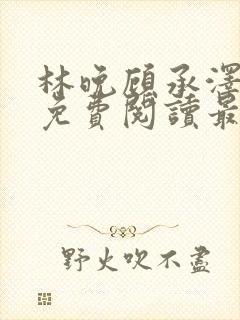 林晚顾承澤
免費閱讀最
野火吹不盡